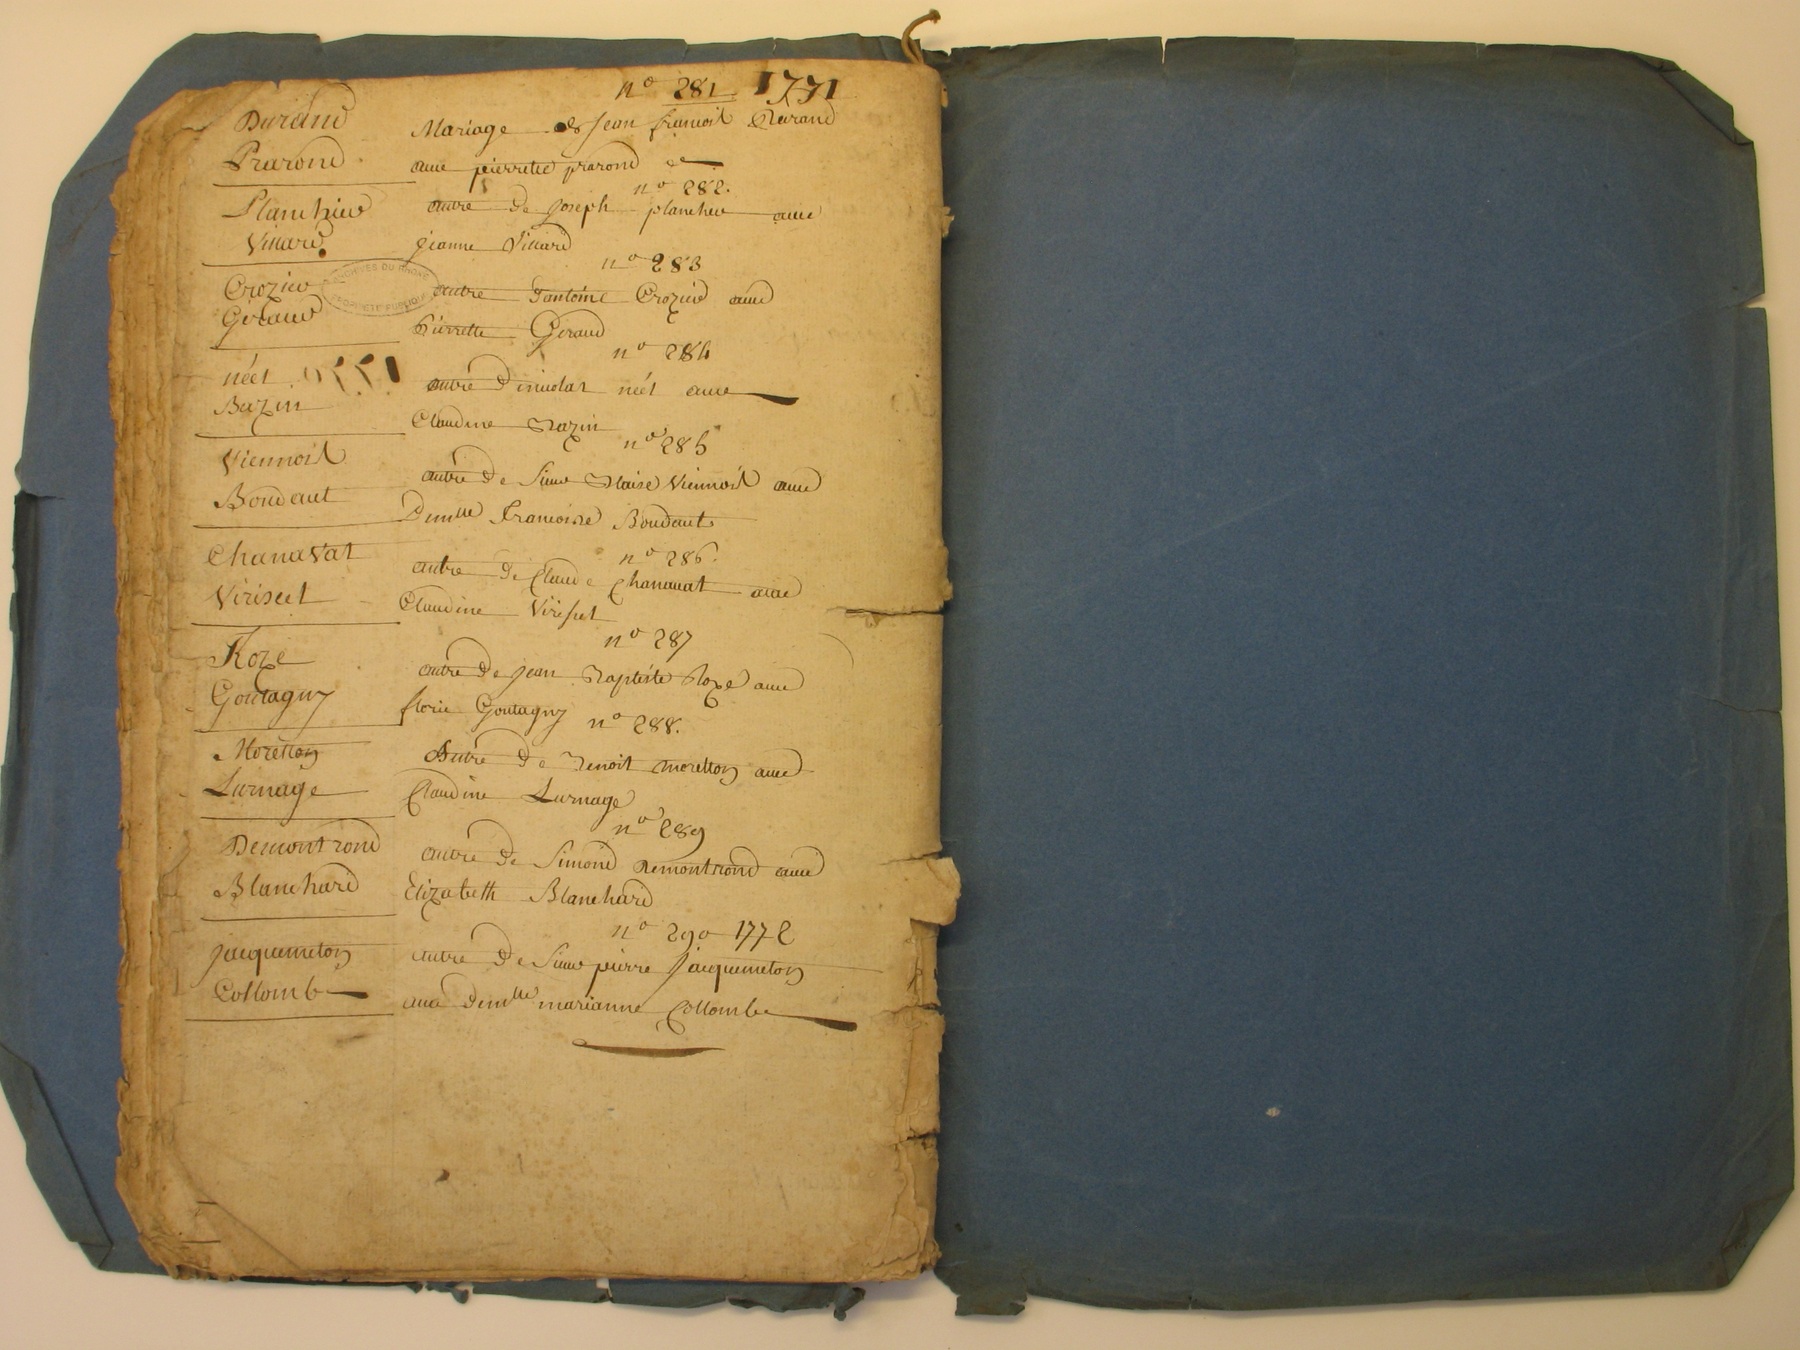 n° 281 1771
Durand
Mariage de Jean francois Durand
Prarond
avec pierrette prarond
n° 282.
Planchieu
autre de Joseph planchieu avec
Villard
jeanne Villard
n° 283
ARCHIVES DU RHONE
PROPRIETE PUBLIQUE
Crozier
autre dantoine Crozier avec
Geraud
Pierrette Geraud
n° 284
néel
autre de nicolas néel avec
Bazin
Claudine Bazin
n° 285
Viennois
autre de Sieur Blaise Viennois avec
Boudaut
Demlle Francoise Boudaut
n° 286.
Chanavat
autre de Claude Chanavat avec
Virisel
Claudine Virisel
n° 287
Roze
autre de jean Baptiste Roze avec
Goutagny
florie Goutagny
n° 288.
Moretton
Autre de Benoit moretton avec
Lurnage
Claudine Lurnage
n° 289
Demontrond
autre de Simond Demontrond avec
Blanchard
Elizabeth Blanchard
n° 290 1772
jacquemeton
autre de Sieur pierre Jacquemeton
Collombe
avec demlle marianne Collombe